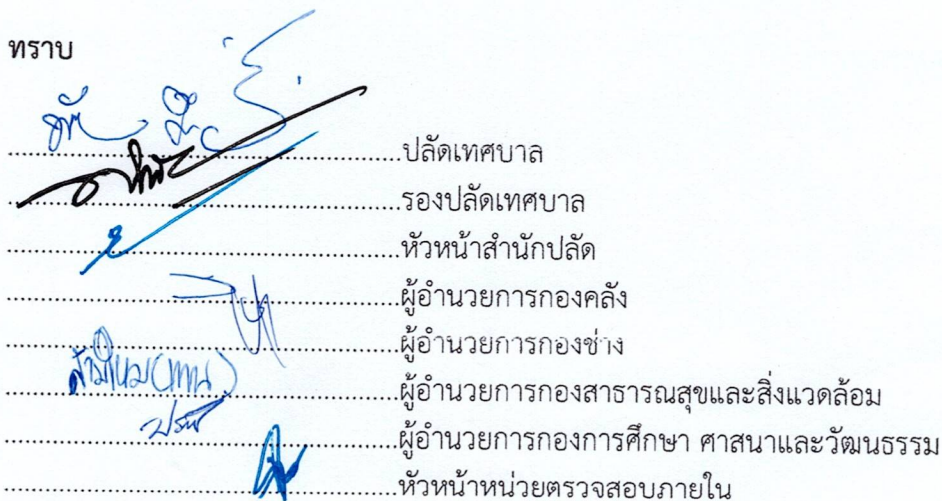 ทราบ
........................................ปลัดเทศบาล
........................................รองปลัดเทศบาล
........................................หัวหน้าสำนักปลัด
........................................ผู้อำนวยการกองคลัง
........................................ผู้อำนวยการกองช่าง
........................................ผู้อำนวยการกองสาธารณสุขและสิ่งแวดล้อม
........................................ผู้อำนวยการกองการศึกษา ศาสนาและวัฒนธรรม
........................................หัวหน้าหน่วยตรวจสอบภายใน